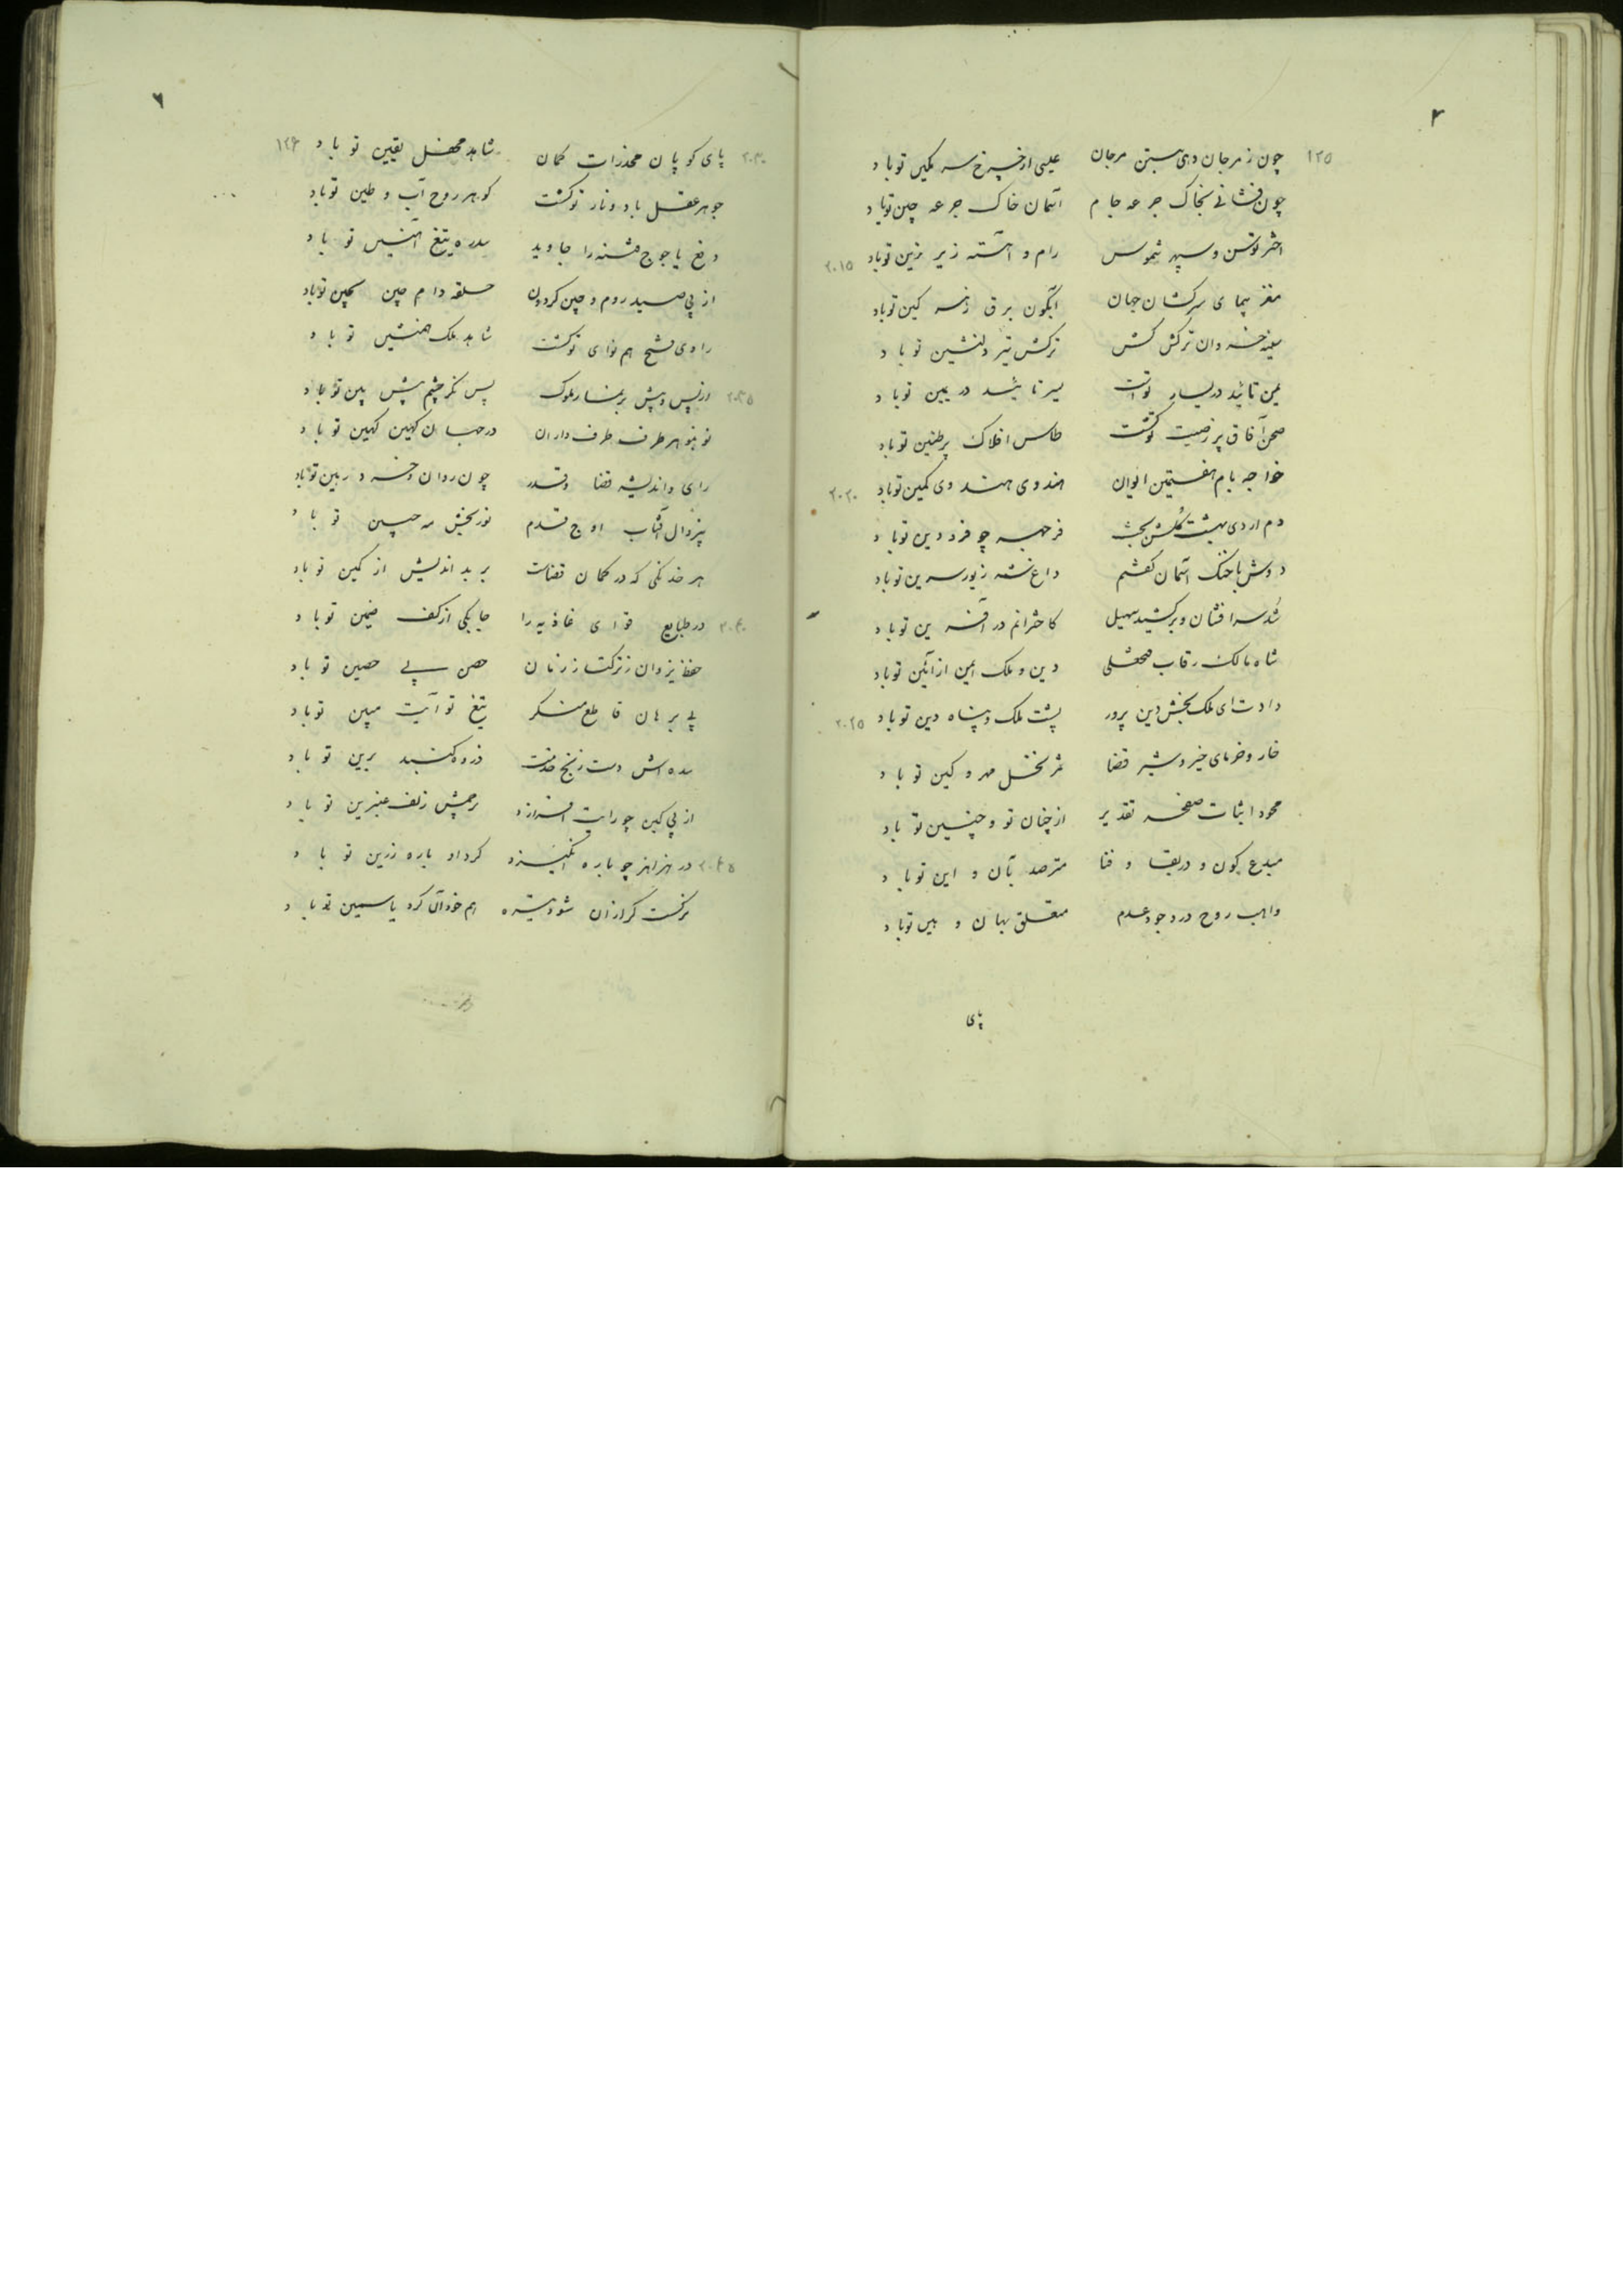 ۳
۱۲۵ چون ز مرجان دهی بستن مرجان عیسی از چرخ سه نگین تو باد
چون فشانی بخاک جرعه جام آسمان خاک جرعه چین تو باد
اختر توسن و سپهر شموس رام و آهسته زیر زین تو باد ۲۰۱۵
مغز پیمای سرکشان جهان آبگون برق زهر کین تو باد
سینه خسروان ترکش کش ترکش تیر دلنشین تو باد
یمن تائید در یسار تو است یسر تائید در یمین تو باد
صحن آفاق پر ز صیت تو گشت طاس افلاک پر طنین تو باد
خواجه بام هفتمین ایوان هندوی هندوی کمین تو باد ۲۰۲۰
دم اردی بهشت گلشن بخش فر جبهه چو فرودین تو باد
دوش با خنگ آسمان گفتم داغ شه زیور سرین تو باد
شد سرافشان و برکشید سهیل کاخترانم در آفرین تو باد
شاه مالک رقاب فتحعلی دین و ملک ایمن از آئین تو باد
دادت ای ملک بخش دین پرور پشت ملک و پناه دین تو باد ۲۰۲۵
خار و خرمای خیر و شر قضا ثمر نخل مهر و کین تو باد
محو و اثبات صفحه تقدیر از چنان تو و چنین تو باد
مبدع کون و در بقا و فنا مترصد بآن و این تو باد
واهب روح در وجود و عدم متعلق بهان و هین تو باد
پای
۶
۲۰۳۰ پای کوبان مخدرات گمان شاهد محفل یقین تو باد ۱۲۶
جوهر عقل باد و نار تو گشت گوهر روح آب و طین تو باد
دفع یاجوج فتنه را جاوید سدره تیغ آهنین تو باد
از پی صید روم و چین گردون حلقه دام چین بچین تو باد
راوی فتح هم نوای تو گشت شاهد ملک همنشین تو باد
۲۰۳۵ در پس و پیش بر یسار ملوک پس نگر چشم پیش بین تو باد
نو بنو هر طرف طرف داران در جهان کهین کهین تو باد
رای و اندیشه قضا و قدر چون روان و خرد رهین تو باد
بیزوال آفتاب اوج قدم نور بخش مه جبین تو باد
هر خدنگی که در کمان قضاست بر بد اندیش از کمین تو باد
۲۰۴۰ در طبایع قوای غاذیه را چابکی از کف ضمین تو باد
حفظ یزدان ز ترکتاز زمان حصن پی حصین تو باد
پی برهان قاطع منکر تیغ تو آیت مبین تو باد
سده اش دست رنج خدمت ذروه گنبد برین تو باد
از پی کین چو رایت افرازد پرچمش زلف عنبرین تو باد
۲۰۴۵ در هزاهز چو باره انگیزد گرد او یاره زرین تو باد
نرگست گر از آن شود تیره هم خود آن گرد یاسمین تو باد